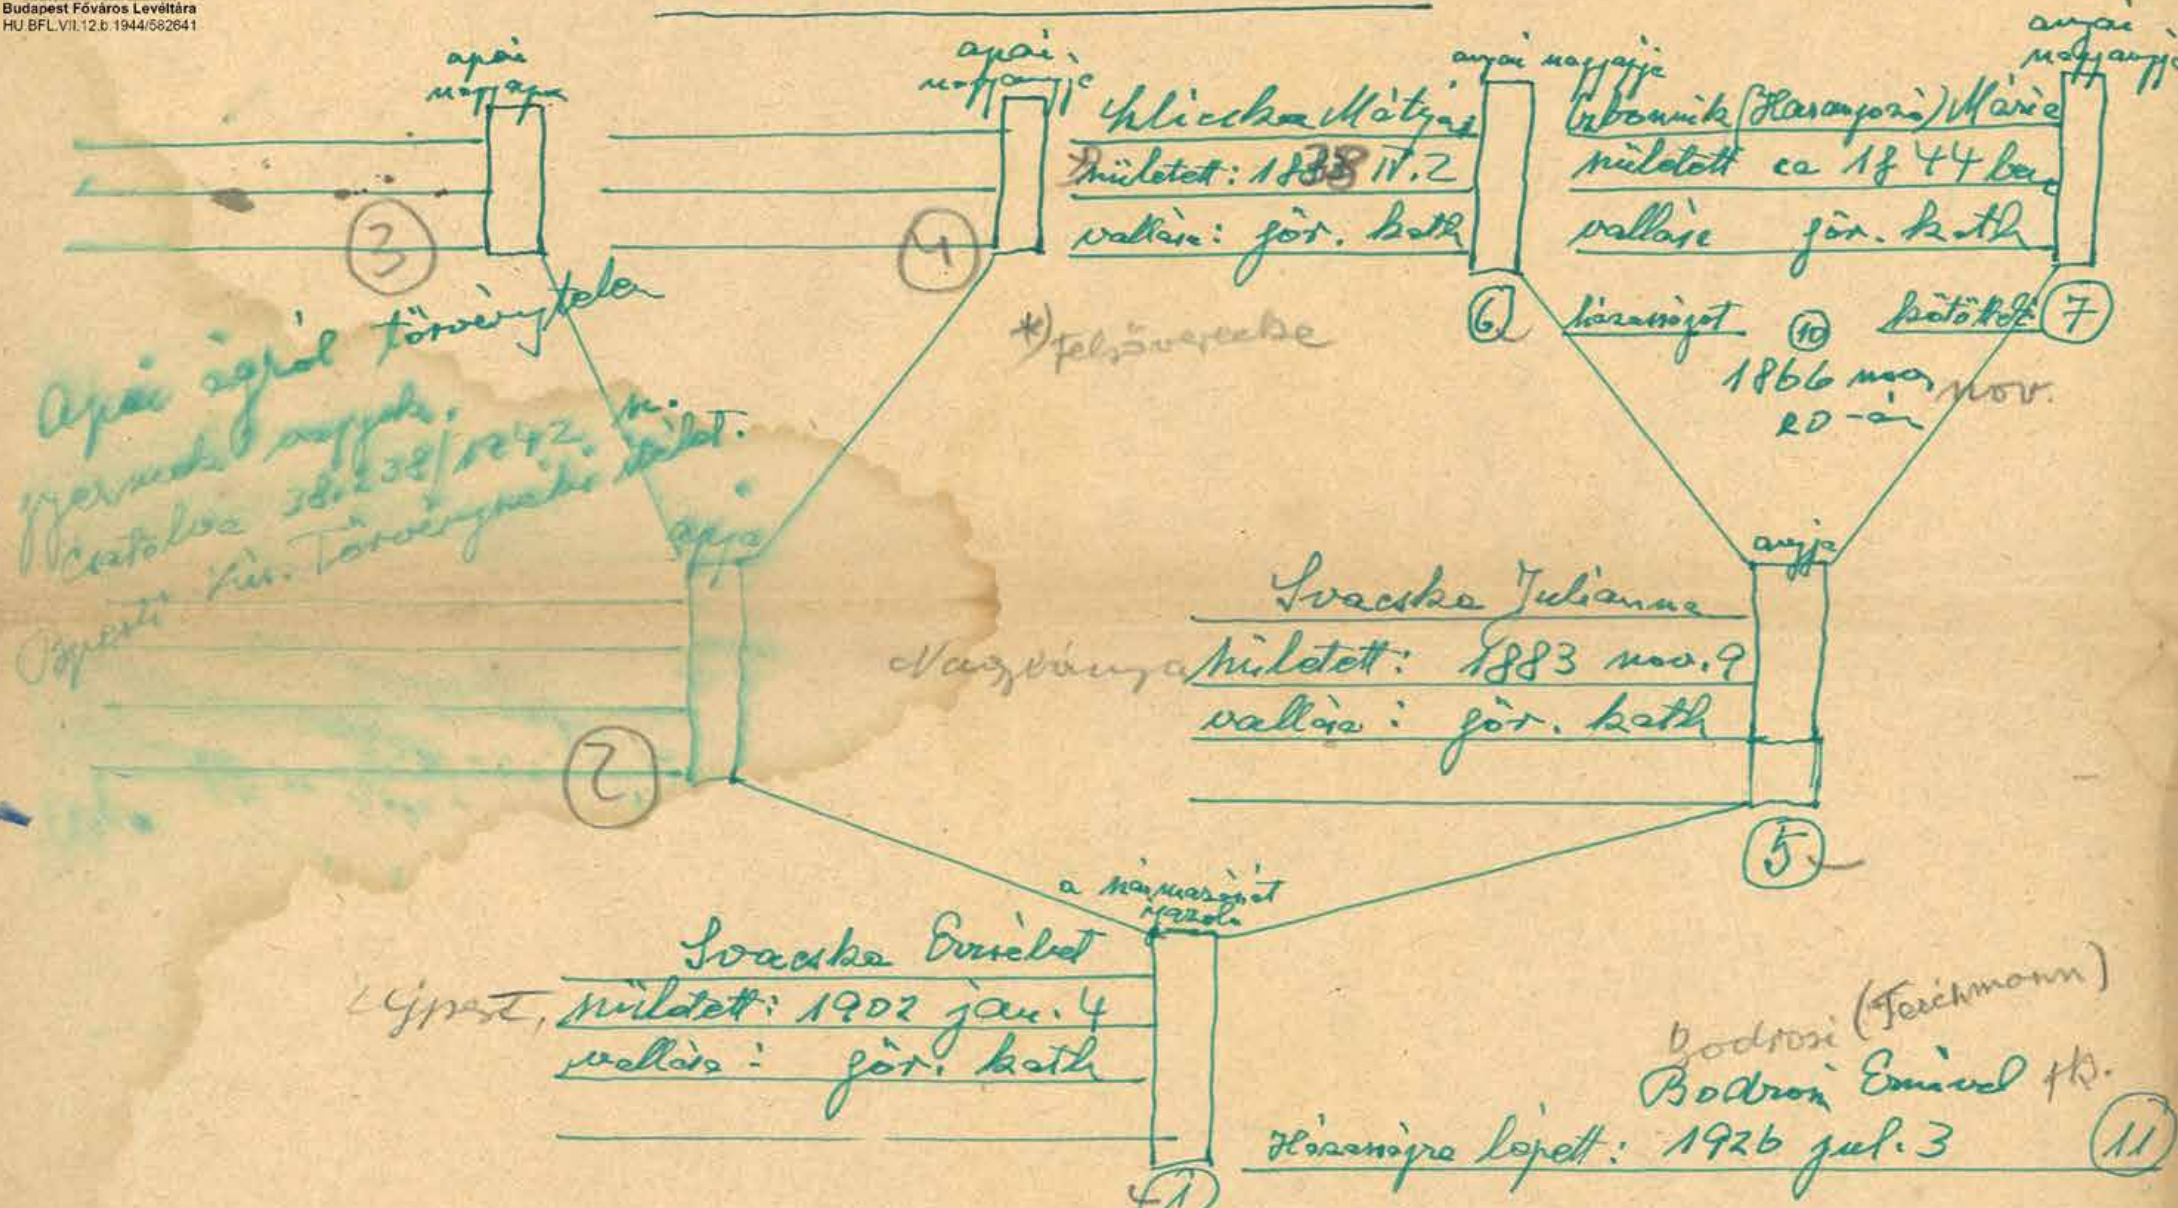 Budapest Főváros Levéltára
HU.BFL.VII.12.b.1944/582641
apai
nagyapa
3
apai
nagyanyja
4
Mátyás
született: 1838 IV. 2
vallása: gör. kath
anyai nagyapja
6
(Harangozó) Mária
született ca 1844 ben
vallása gör. kath
anyai
nagyanyja
7
házasságot 10 kötöttek
1866 nov. nov.
20-án
*) Felsővereczke
Apai ágról törvénytelen
gyermek vagyok.
Csatolva
Bpesti Kir. Törvényszéki ítélet.
apja
2
anyja
Svacska Julianna
Nagybánya született: 1883 nov. 9
vallása: gör. kath
5
a származását
igazoló
Svacska Erzsébet
Újpest, született: 1902 jan. 4
vallása: gör. kath
1
Bodrosi (Teichmann)
Bodrosi Ernővel
Házasságra lépett: 1926 jul. 3
11